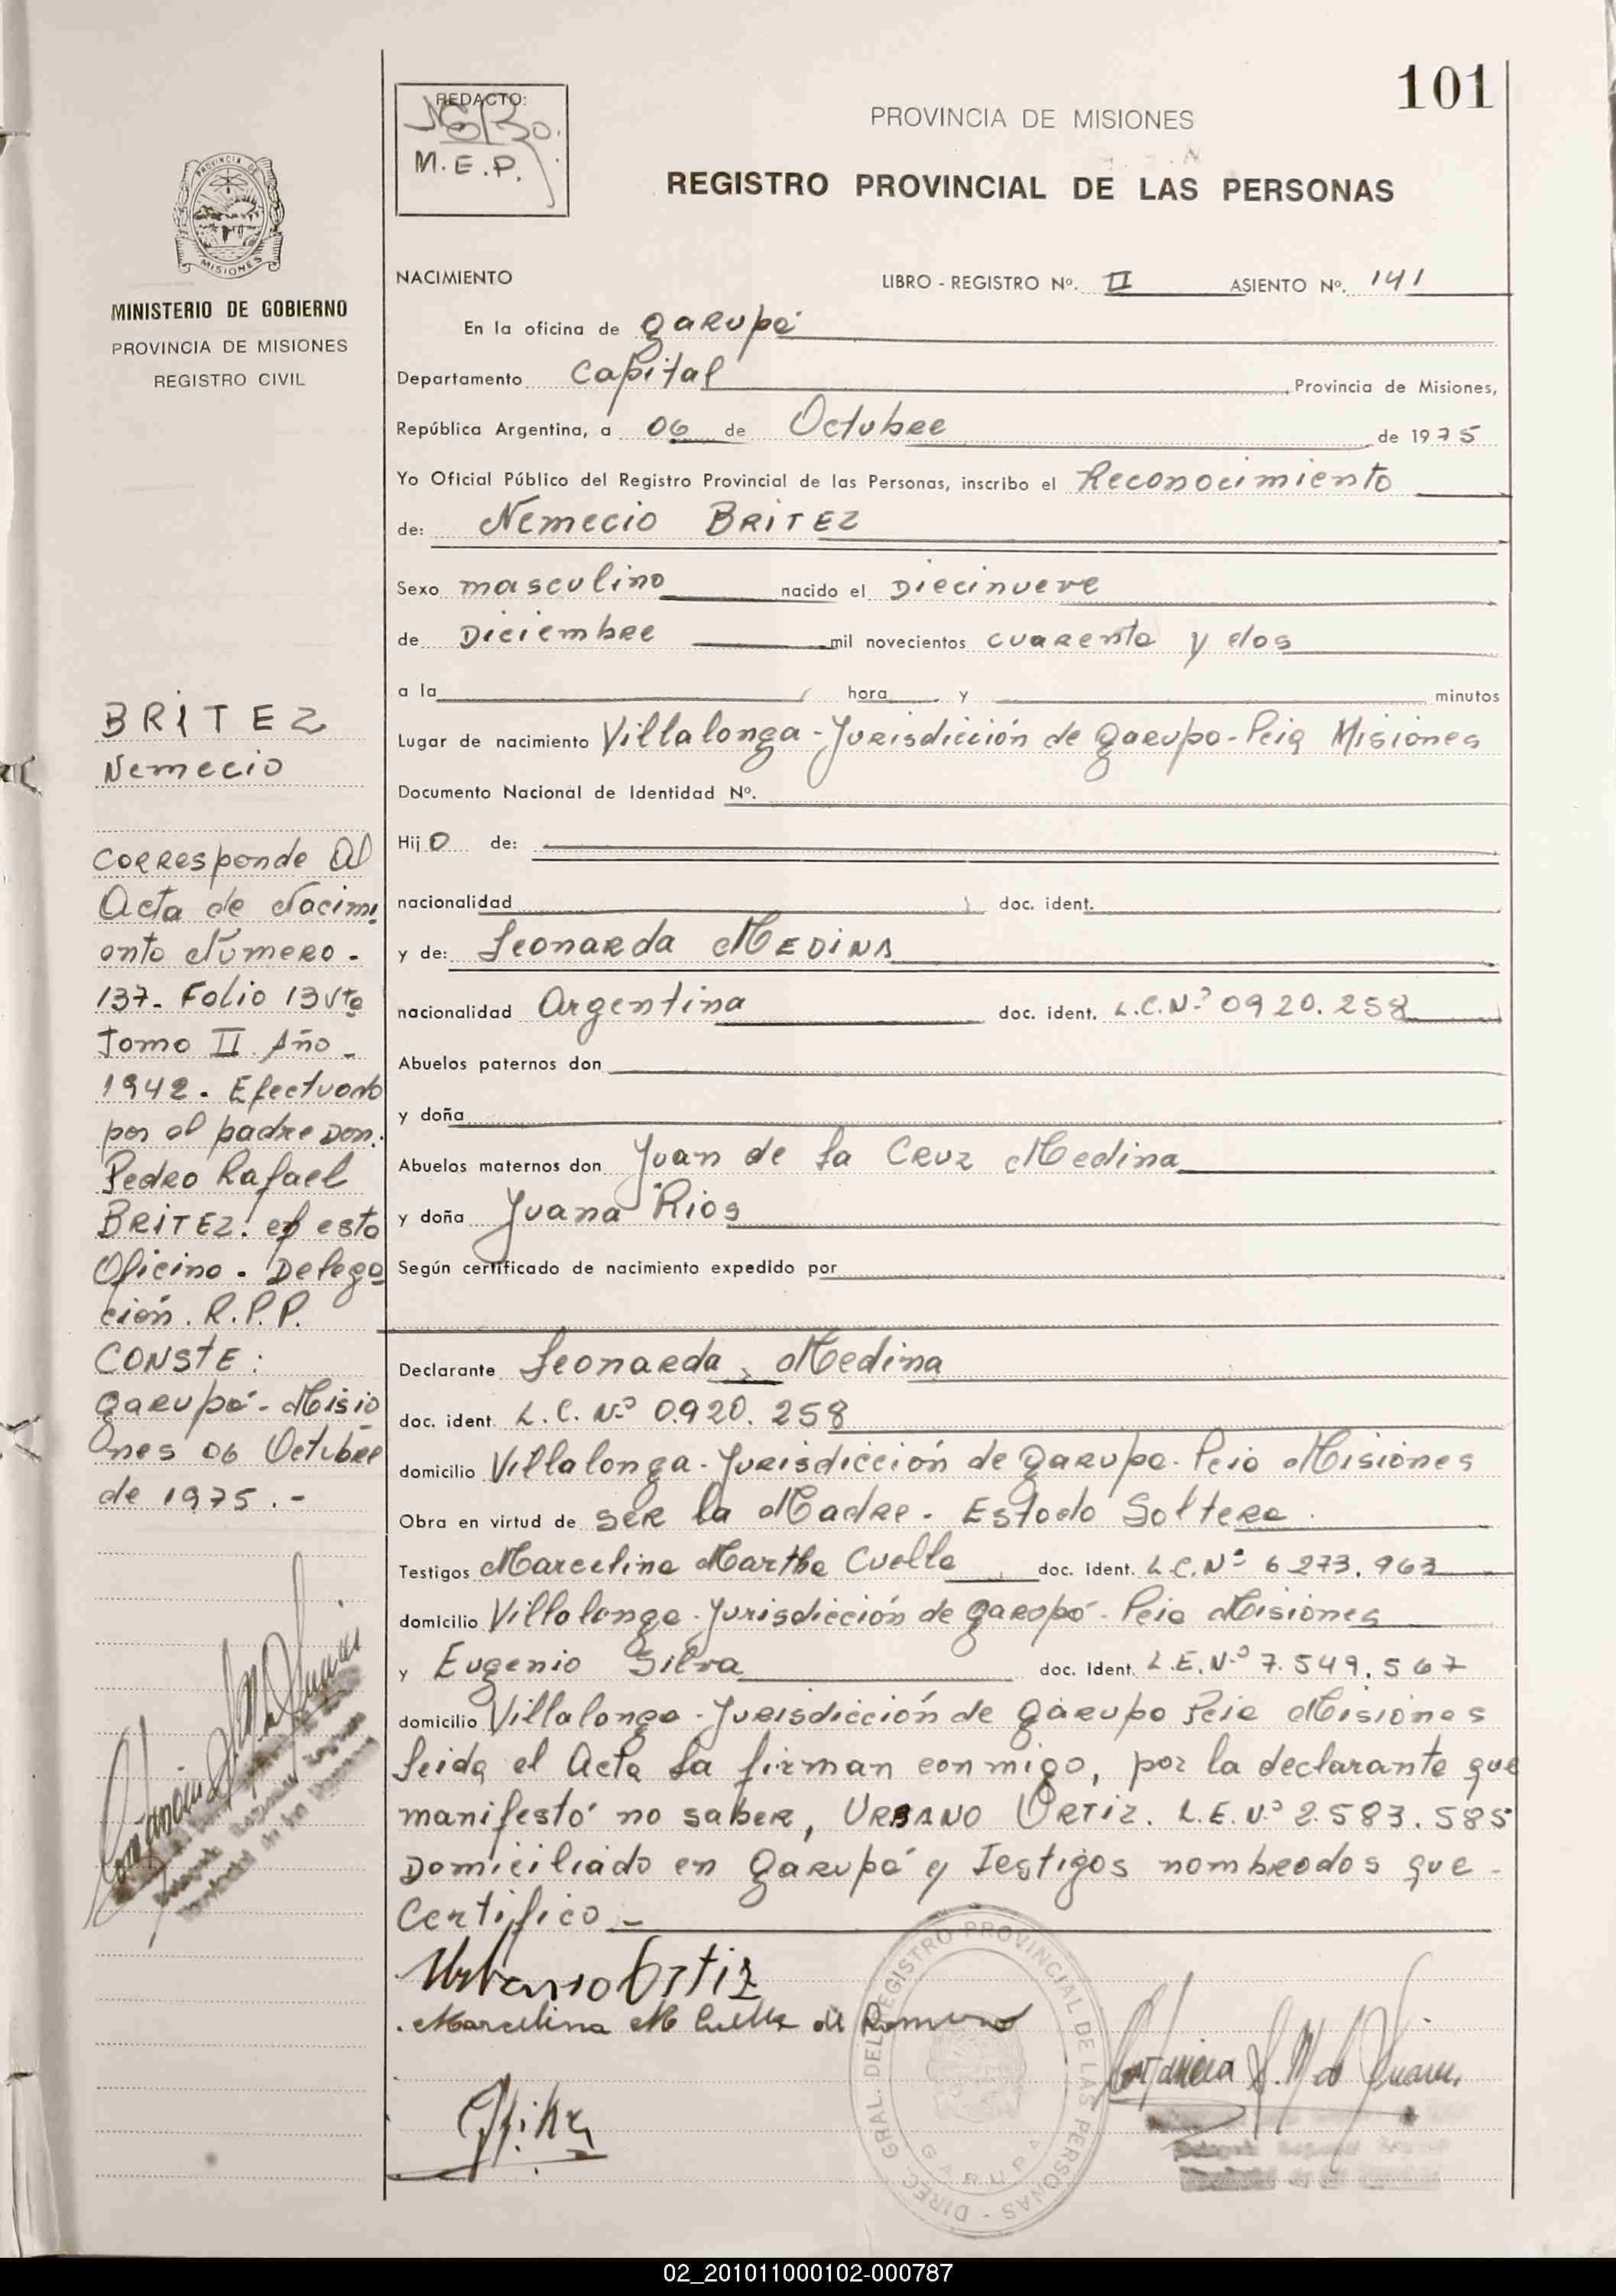 101
REDACTO:
M.E.P.
PROVINCIA DE MISIONES
REGISTRO PROVINCIAL DE LAS PERSONAS
PROVINCIA DE
MISIONES
MINISTERIO DE GOBIERNO
PROVINCIA DE MISIONES
REGISTRO CIVIL
NACIMIENTO LIBRO - REGISTRO Nº. II ASIENTO Nº. 141
En la oficina de Garupá
Departamento Capital Provincia de Misiones,
República Argentina, a 06 de Octubre de 1975
Yo Oficial Público del Registro Provincial de las Personas, inscribo el Reconocimiento
de: Nemecio BRITEZ
Sexo masculino nacido el Diecinueve
de Diciembre mil novecientos cuarenta y dos
a la hora y minutos
Lugar de nacimiento Villalonga - Jurisdicción de Garupá - Pcia Misiones
Documento Nacional de Identidad Nº.
Hijo de:
nacionalidad doc. ident.
y de: Leonarda MEDINA
nacionalidad Argentina doc. ident. L.C.Nº 0920.258
Abuelos paternos don
y doña
Abuelos maternos don Juan de La Cruz Medina
y doña Juana Rios
Según certificado de nacimiento expedido por
Declarante Leonarda Medina
doc. ident. L.C. Nº 0.920.258
domicilio Villalonga - Jurisdicción de Garupá - Pcia Misiones
Obra en virtud de SER la Madre - Estado Soltera.
Testigos Marcelina Martha Cuella doc. ident. L.C.Nº 6273.963
domicilio Villalonga - Jurisdicción de Garupá - Pcia Misiones
y Eugenio Silva doc. Ident. L.E.Nº 7.549.567
domicilio Villalonga - Jurisdicción de Garupá Pcia Misiones
Leida el Acta La firman conmigo, por la declarante que
manifestó no saber, URBANO ORTIZ. L.E.Nº 2.583.585
Domiciliado en Garupá y Testigos nombrados que -
Certifico -
Urbano Ortiz
Marcelina M Cuella de Romero
BRITEZ
Nemecio
Corresponde Al
Acta de Nacimi
ento Número -
137 - Folio 13 Vta
Tomo II Año -
1942 - Efectuado
por el padre Don:
Pedro Rafael
BRITEZ: en esta
Oficina - Delega
ción. R.P.P.
CONSTE:
Garupá - Misio
nes 06 Octubre
de 1975.-
DIREC. GRAL. DEL REGISTRO PROVINCIAL DE LAS PERSONAS -
GARUPA
02_201011000102-000787